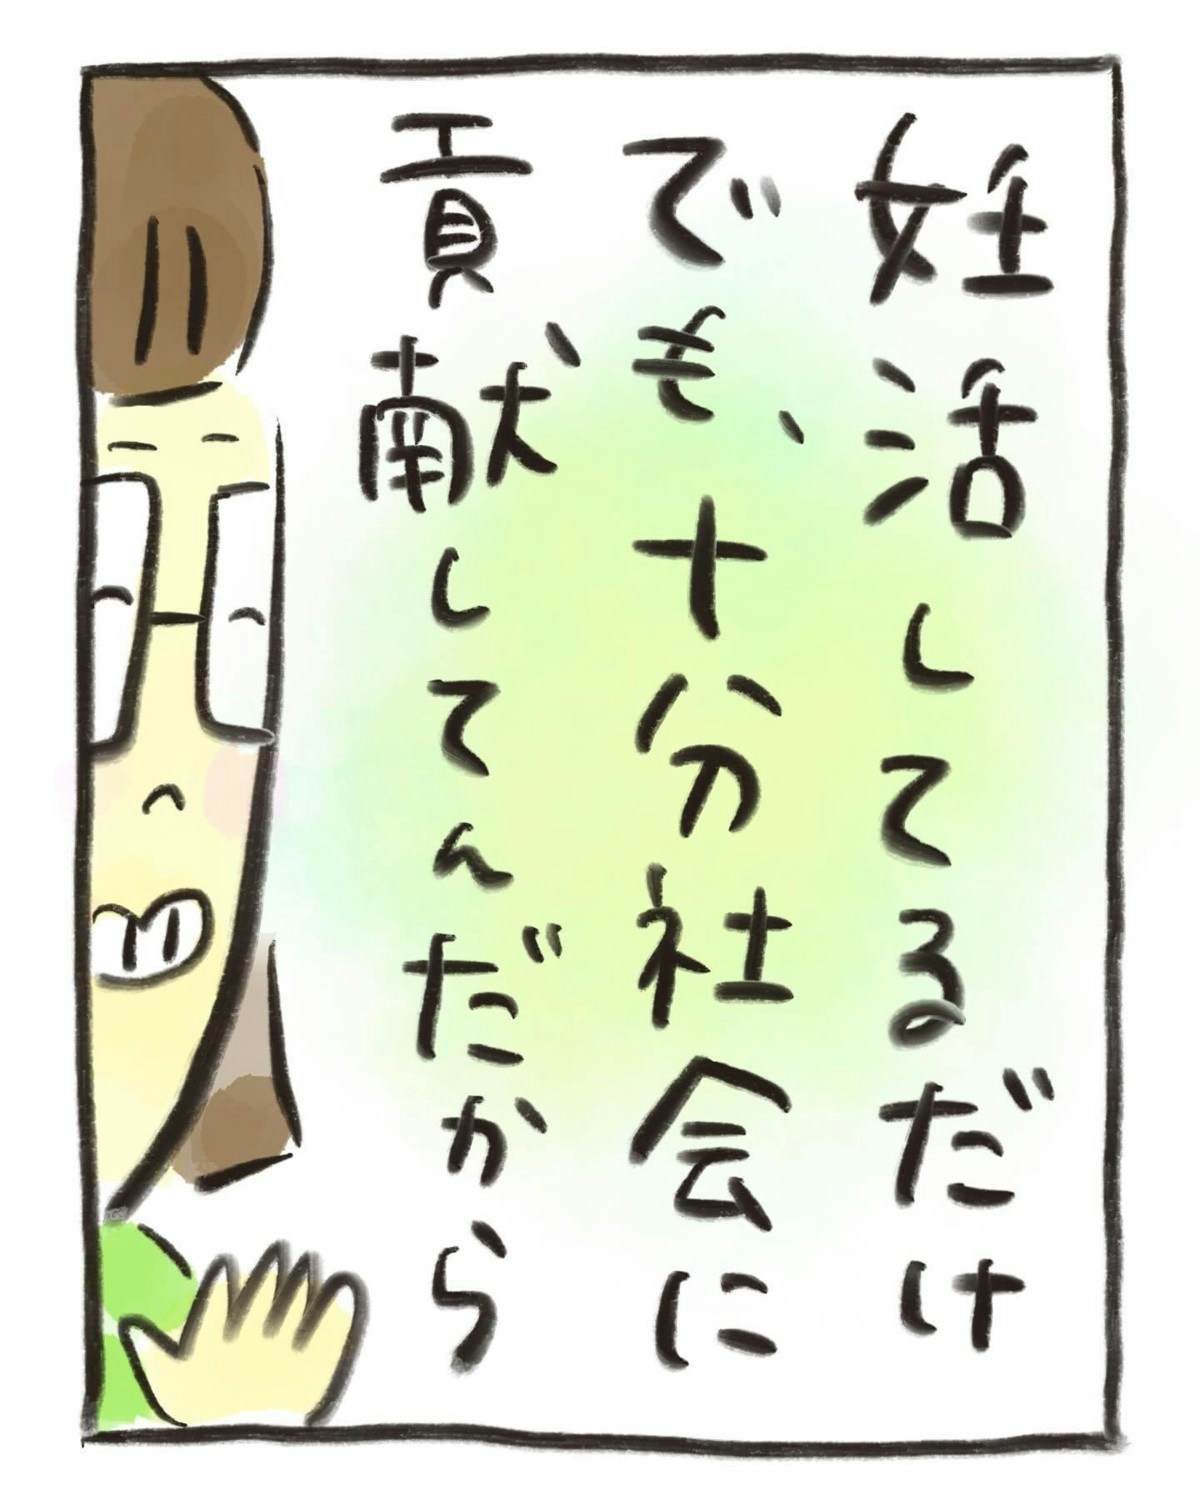 妊活してるだけ
でも、十分社会に
貢献してんだから